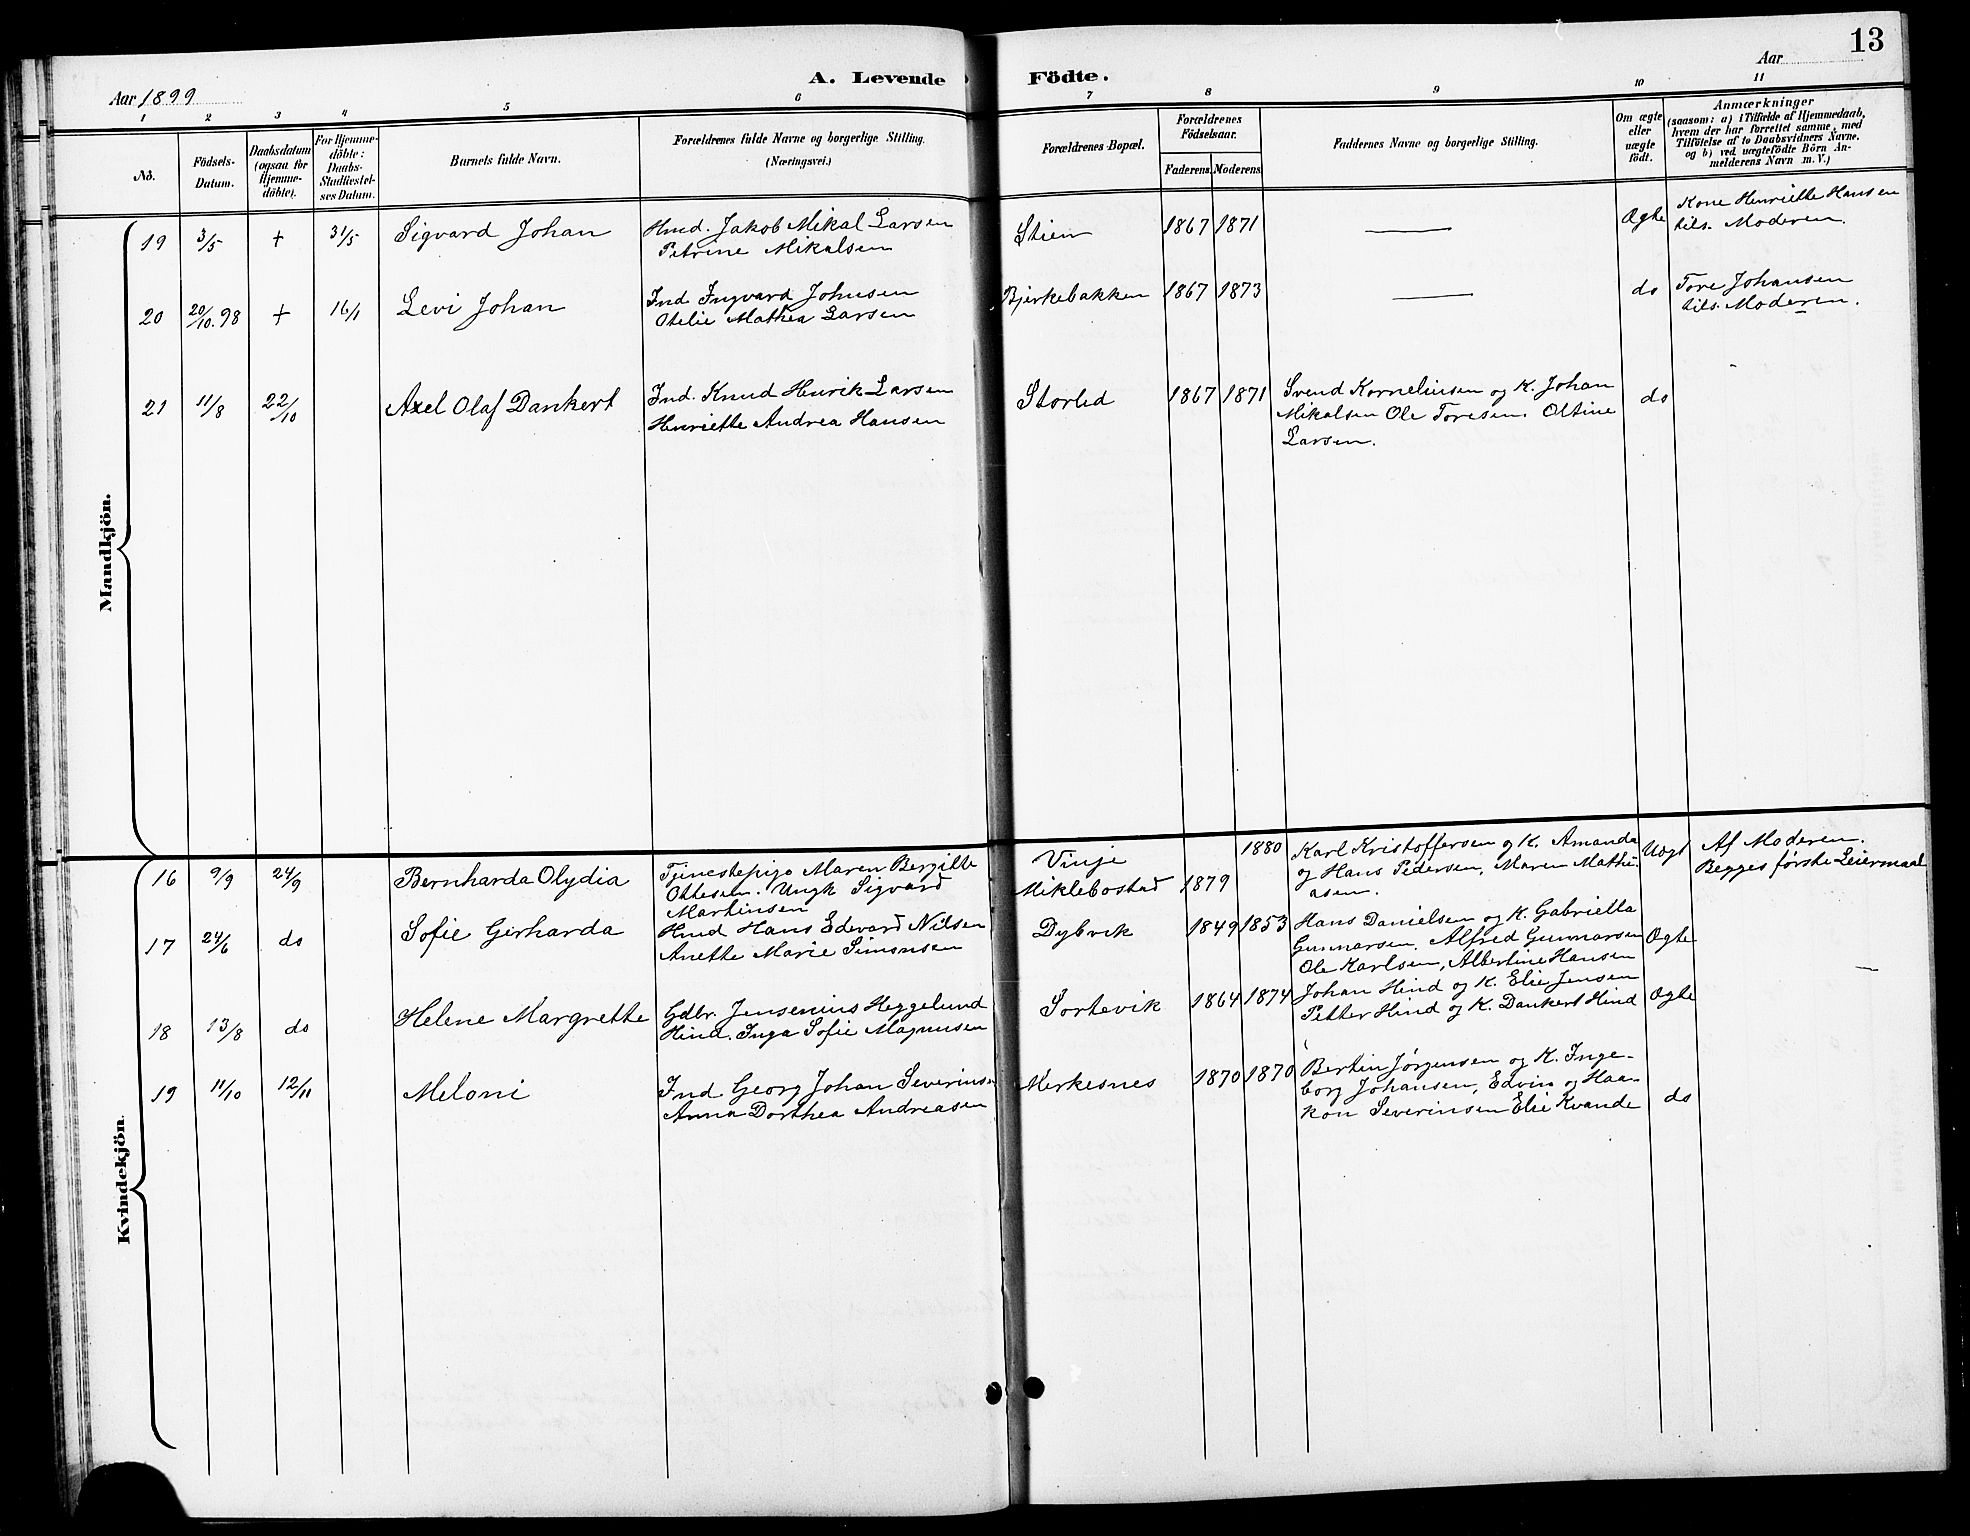 13
A. Levende Födte.
Aar 1899
Aar
1 2 3 4 5 6 7 8 9 10 11
No.
Födsels-Datum.
Daabsdatum (ogsaa for Hjemme-döbte).
For Hjemme-döbte: Daabs-Stadfæstel-ses Datum.
Barnets fulde Navn.
Forældrenes fulde Navne og borgerlige Stilling. (Næringsvei.)
Forældrenes Bopæl.
Forældrenes Födselsaar.
Faderens.
Moderens.
Faddernes Navne og borgerlige Stilling.
Om ægte eller uægte födt.
Anmærkninger
(saasom: a) i Tilfælde af Hjemmedaab, hvem der har forrettet samme, med Tilföielse af to Daabsvidners Navne. og b) ved uægtefödte Börn Anmelderens Navn m. V.)
Mandkjön.
19 3/5 + 31/5 Sigvard Johan
Hmd. Jakob Mikal Larsen
Petrine Mikalsen
Stien 1867 1871 —— Ægte
Kone Henriette Hansen
tils. Moderen.
20 20/10.98 + 16/1 Levi Johan
Ind Ingvard Johnsen
Otelie Mathea Larsen
Bjerkebakken 1867 1873 —— do
Tore Johansen
tils. Moderen.
21 11/8 22/10 Axel Olaf Dankert
Ind. Knud Henrik Larsen
Henriette Andrea Hansen
Storlid 1867 1871
Svend Kornelius­en og K. Johan
Mikalsen Ole Toresen. Oltine
Larsen.
do
Kvindekjön.
16 9/9 24/9 Bernharda Olydia
Tjenestepige Maren Bergitte
Ottesen. Ungk Sigvard
Martinsen
Vinje
Miklebostad 1879 1880
Karl Kristoffersen og K. Amanda
og Hans Pedersen, Maren Mathi
asen.
Uægt
Af Moderen.
Begges første Leiermaal
17 24/6 do Sofie Gerharda
Hmd Hans Edvard Nilsen
Anette Marie Simonsen
Dybvik 1849 1853
Hans Danielsen og K. Gabriella
Gunnarsen, Alfred Gunnarsen
Ole Karlsen, Albertine Hansen
Ægte —
18 13/8 do Helene Margrette
Gdbr. Jensenius Heggelund
Hind. Inga Sofie Magnusen
Sortevik 1864 1874
Johan Hind og K. Elie Jensen
Petter Hind og K. Dankert Hind
Ægte
19 11/10 12/11 Meloni
Ind Georg Johan Severinsen
Anna Dorthea Andreasen
Merkesnes 1870 1870
Bertin Jørgensen og K. Inge-
borg Johansen, Edvin og Haa-
kon Severinsen Elie Kvande
do